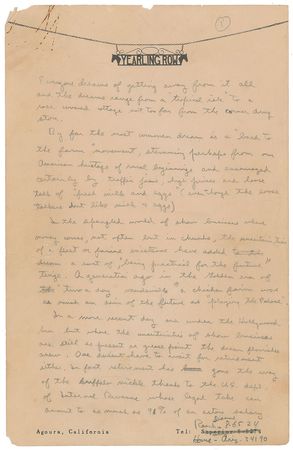 ①
YEARLING ROW
Everyone dreams of getting away from it all
and the dreams range from a tropical isle to a
rose covered cottage not too far from the corner drug
store.
By far the most common dream is a "back to
the farm" movement, stemming perhaps from our
American heritage of rural beginnings and encouraged
certainly by traffic jams, high prices and loose
talk of fresh milk and eggs (even tho the loose
talkers dont like milk & eggs)
In the spangled world of show business where
money comes, not often but in chunks, the uncertainties
of a feast or famine existence have added to
dream a sort of "being practical for the future"
A generation ago in the golden era of
"two a day" vaudeville a chicken farm was
as much an aim of the future as "playing the Palace".
In a more recent day and under the Hollywood
sun but where the uncertainties of show business
are still as present as grease paint the dream flourishes
anew. One doesnt have to wait for retirement
either. In fact retirement has gone the way
of the buffalo nickle thanks to the U.S. dept
of Internal Revenue whose legal take can
amount to as much as 91% of an actors salary
Agoura, California
Tel:
24
Home - 24190